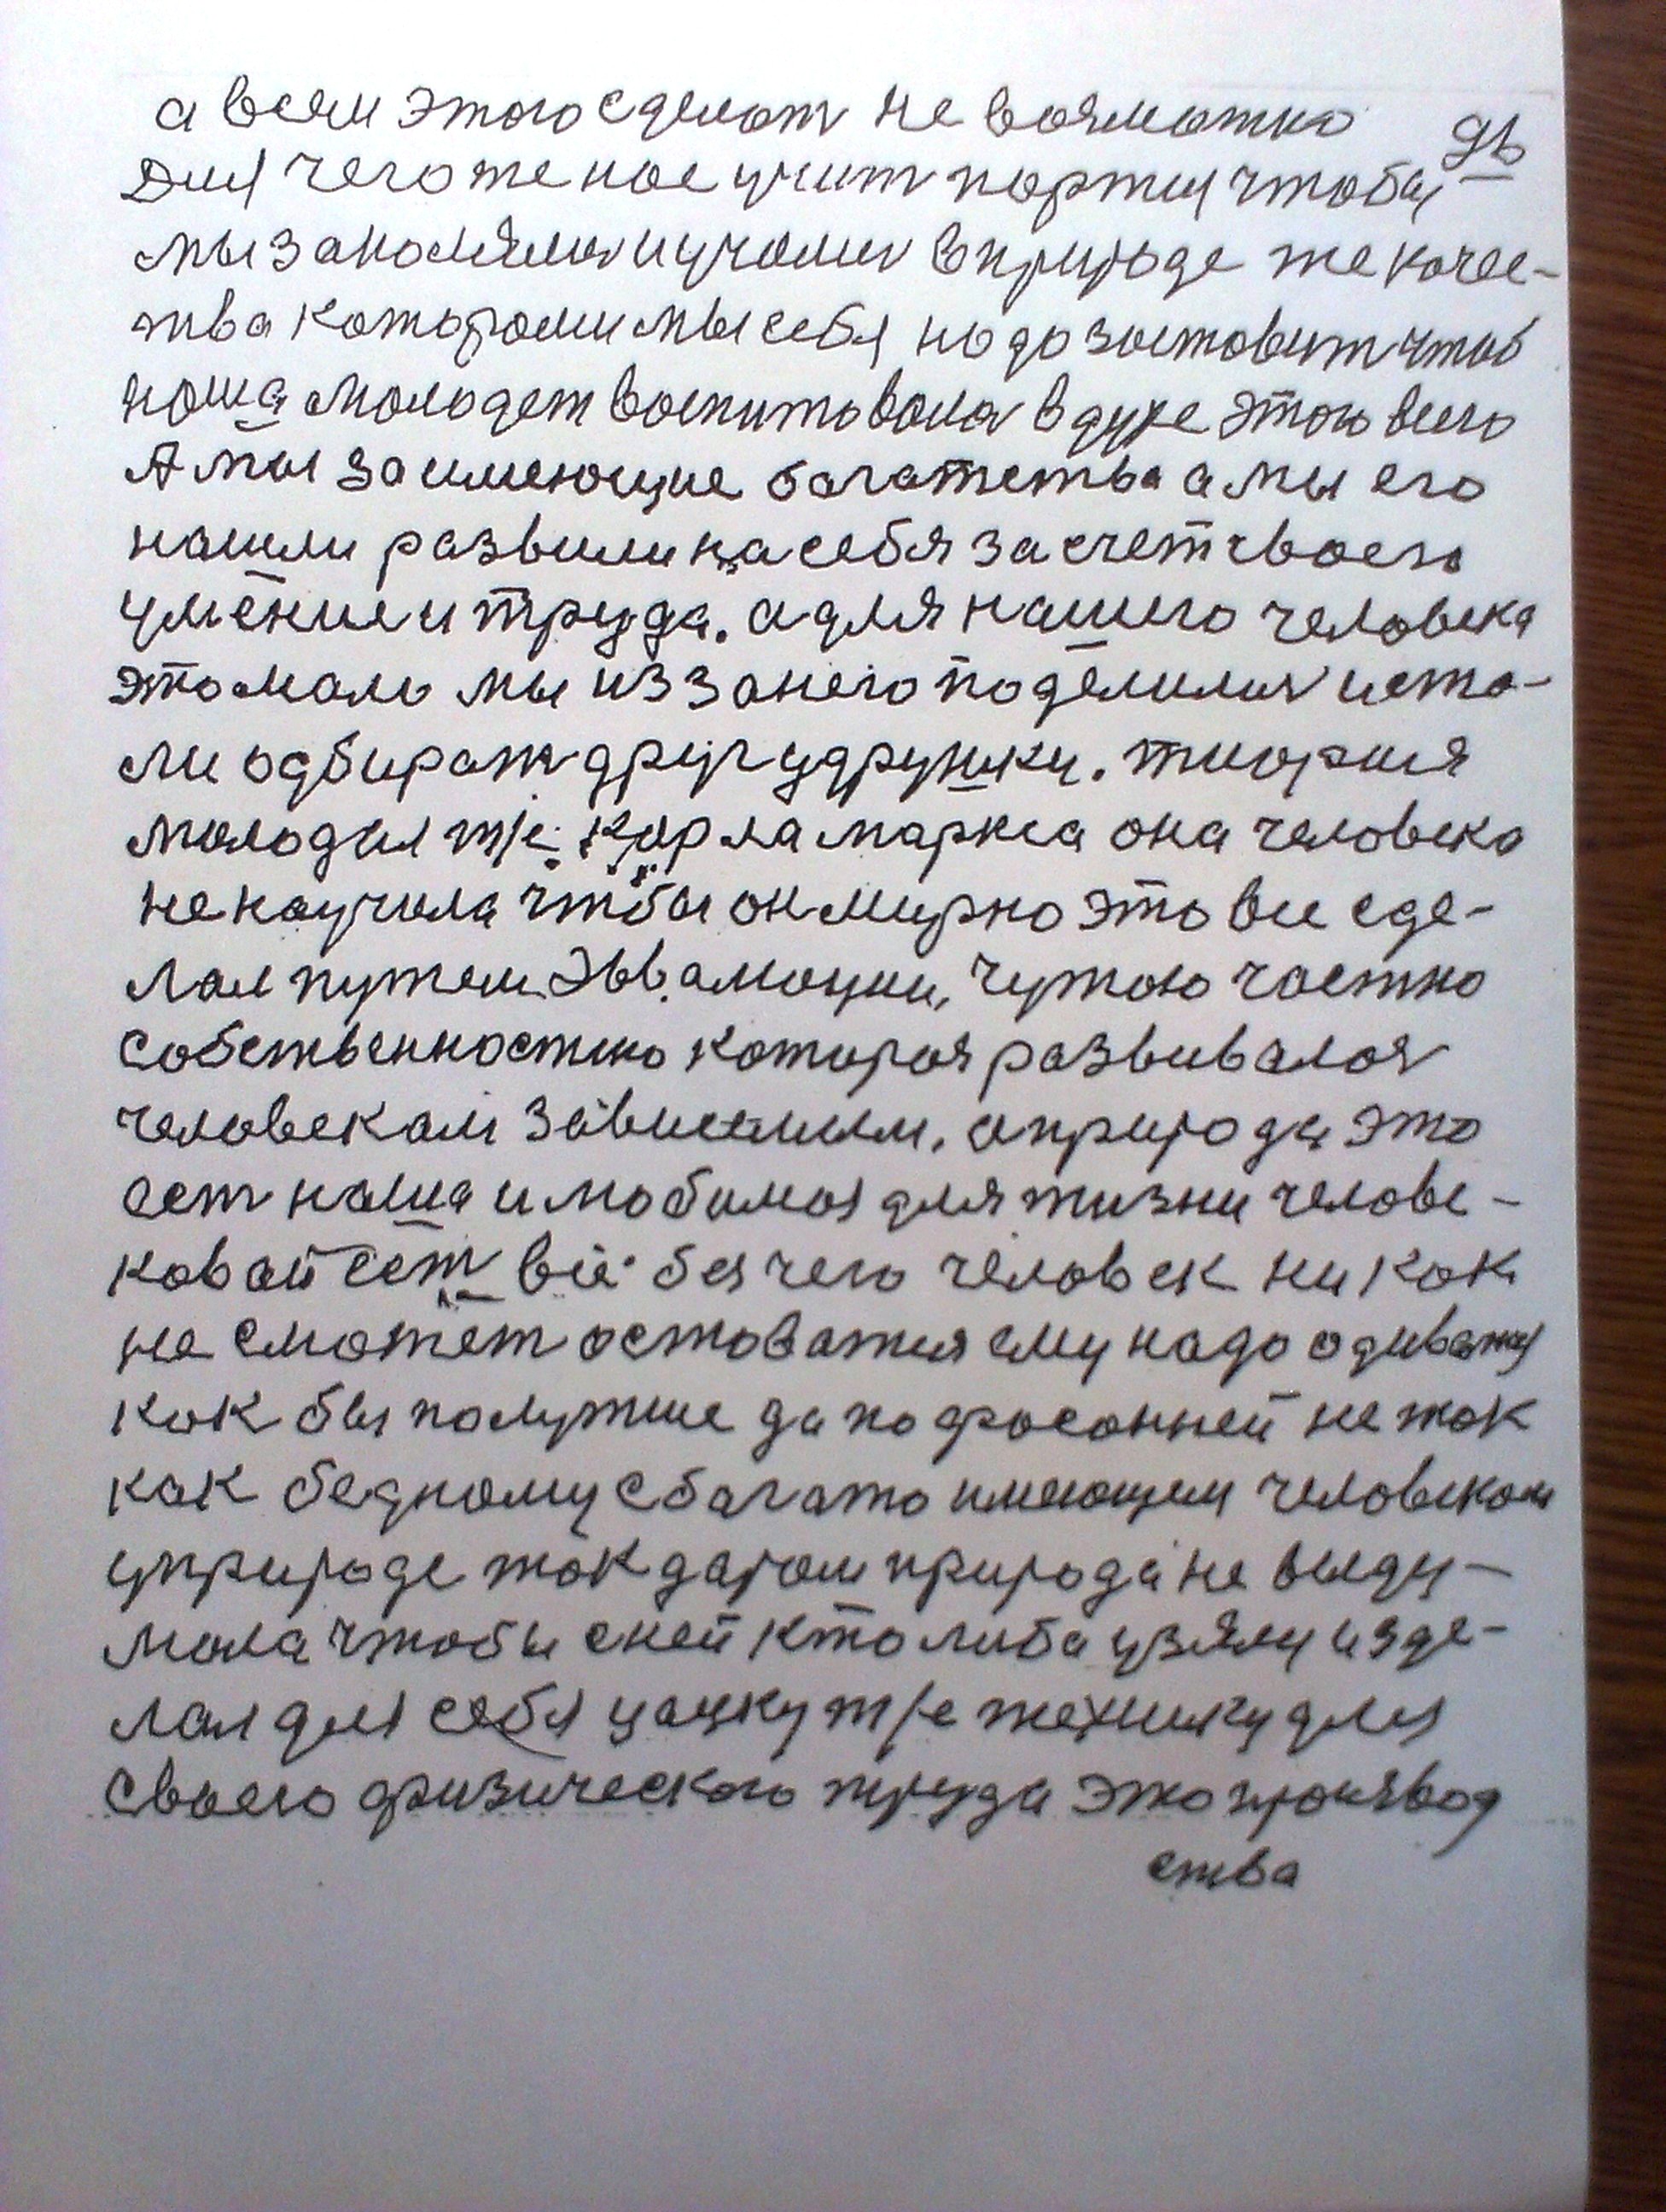 а всем этого сделат не возможно
Для чего же нас учит партия чтобы
мы занолися и учалис в природе же качес-
тва которами мы себя надо заставит чтоб
наша молодеж воспитовалас в духе этого всего
А мы за имеющие багатства а мы его
нашли развили на себя за счет своего
умение и труда. а для нашего человека
это мало мы из за него поделилис и ста-
ли одбират друг у дружки. тиория
молодая т/е. Карла маркса она человека
не научила чтобы он мирно это все сде-
лал путем чутою частно
собственностию котирая развивалас
человекам зависемым. а природа это
ест наша и любимая для жизни челове-
ковай ест все без чего человек ни как
не сможет оставатся ему надо одиватся
как бы получше да по фасонней не так
как бедному с багато имеющем человекам
у природе так даром природа не выду-
мала чтобы с ней кто либа узялу изде-
лал для себя цацку т/е технику для
своего физического труда это производ
ства